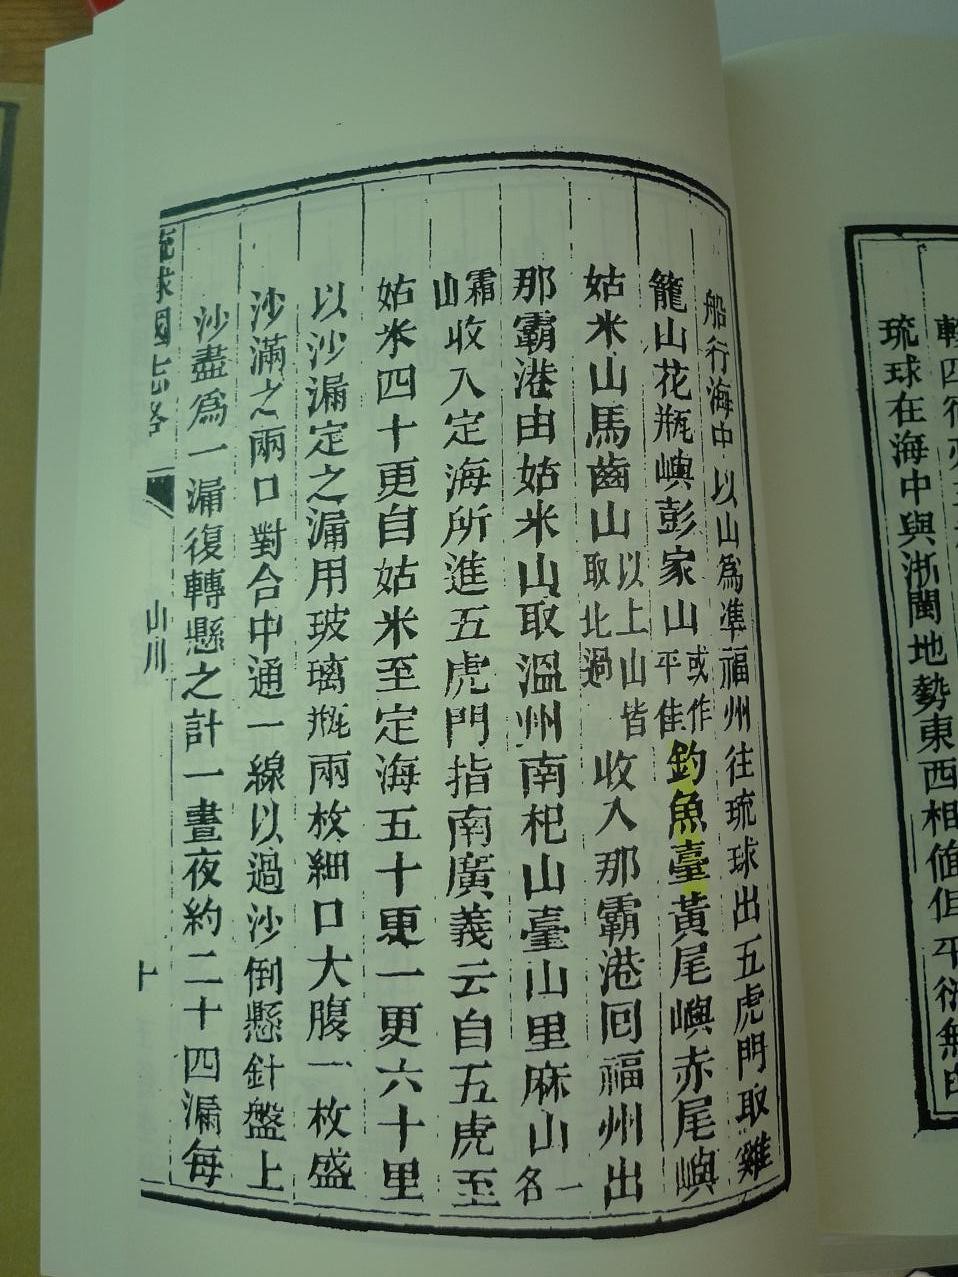 琉球在海中與浙閩地勢東西相值但平衍無
船行海中以山爲準福州往琉球出五虎門取雞
籠山花瓶嶼彭家山或作平佳釣魚臺黃尾嶼赤尾嶼
姑米山馬齒山以上山皆取北過收入那霸港回福州出
那霸港由姑米山取溫州南杞山臺山里麻山一名
霜山收入定海所進五虎門指南廣義云自五虎至
姑米四十更自姑米至定海五十更一更六十里
以沙漏定之漏用玻璃瓶兩枚細口大腹一枚盛
沙滿之兩口對合中通一線以過沙倒懸針盤上
沙盡爲一漏復轉懸之計一晝夜約二十四漏每
琉球國志略 山川 十